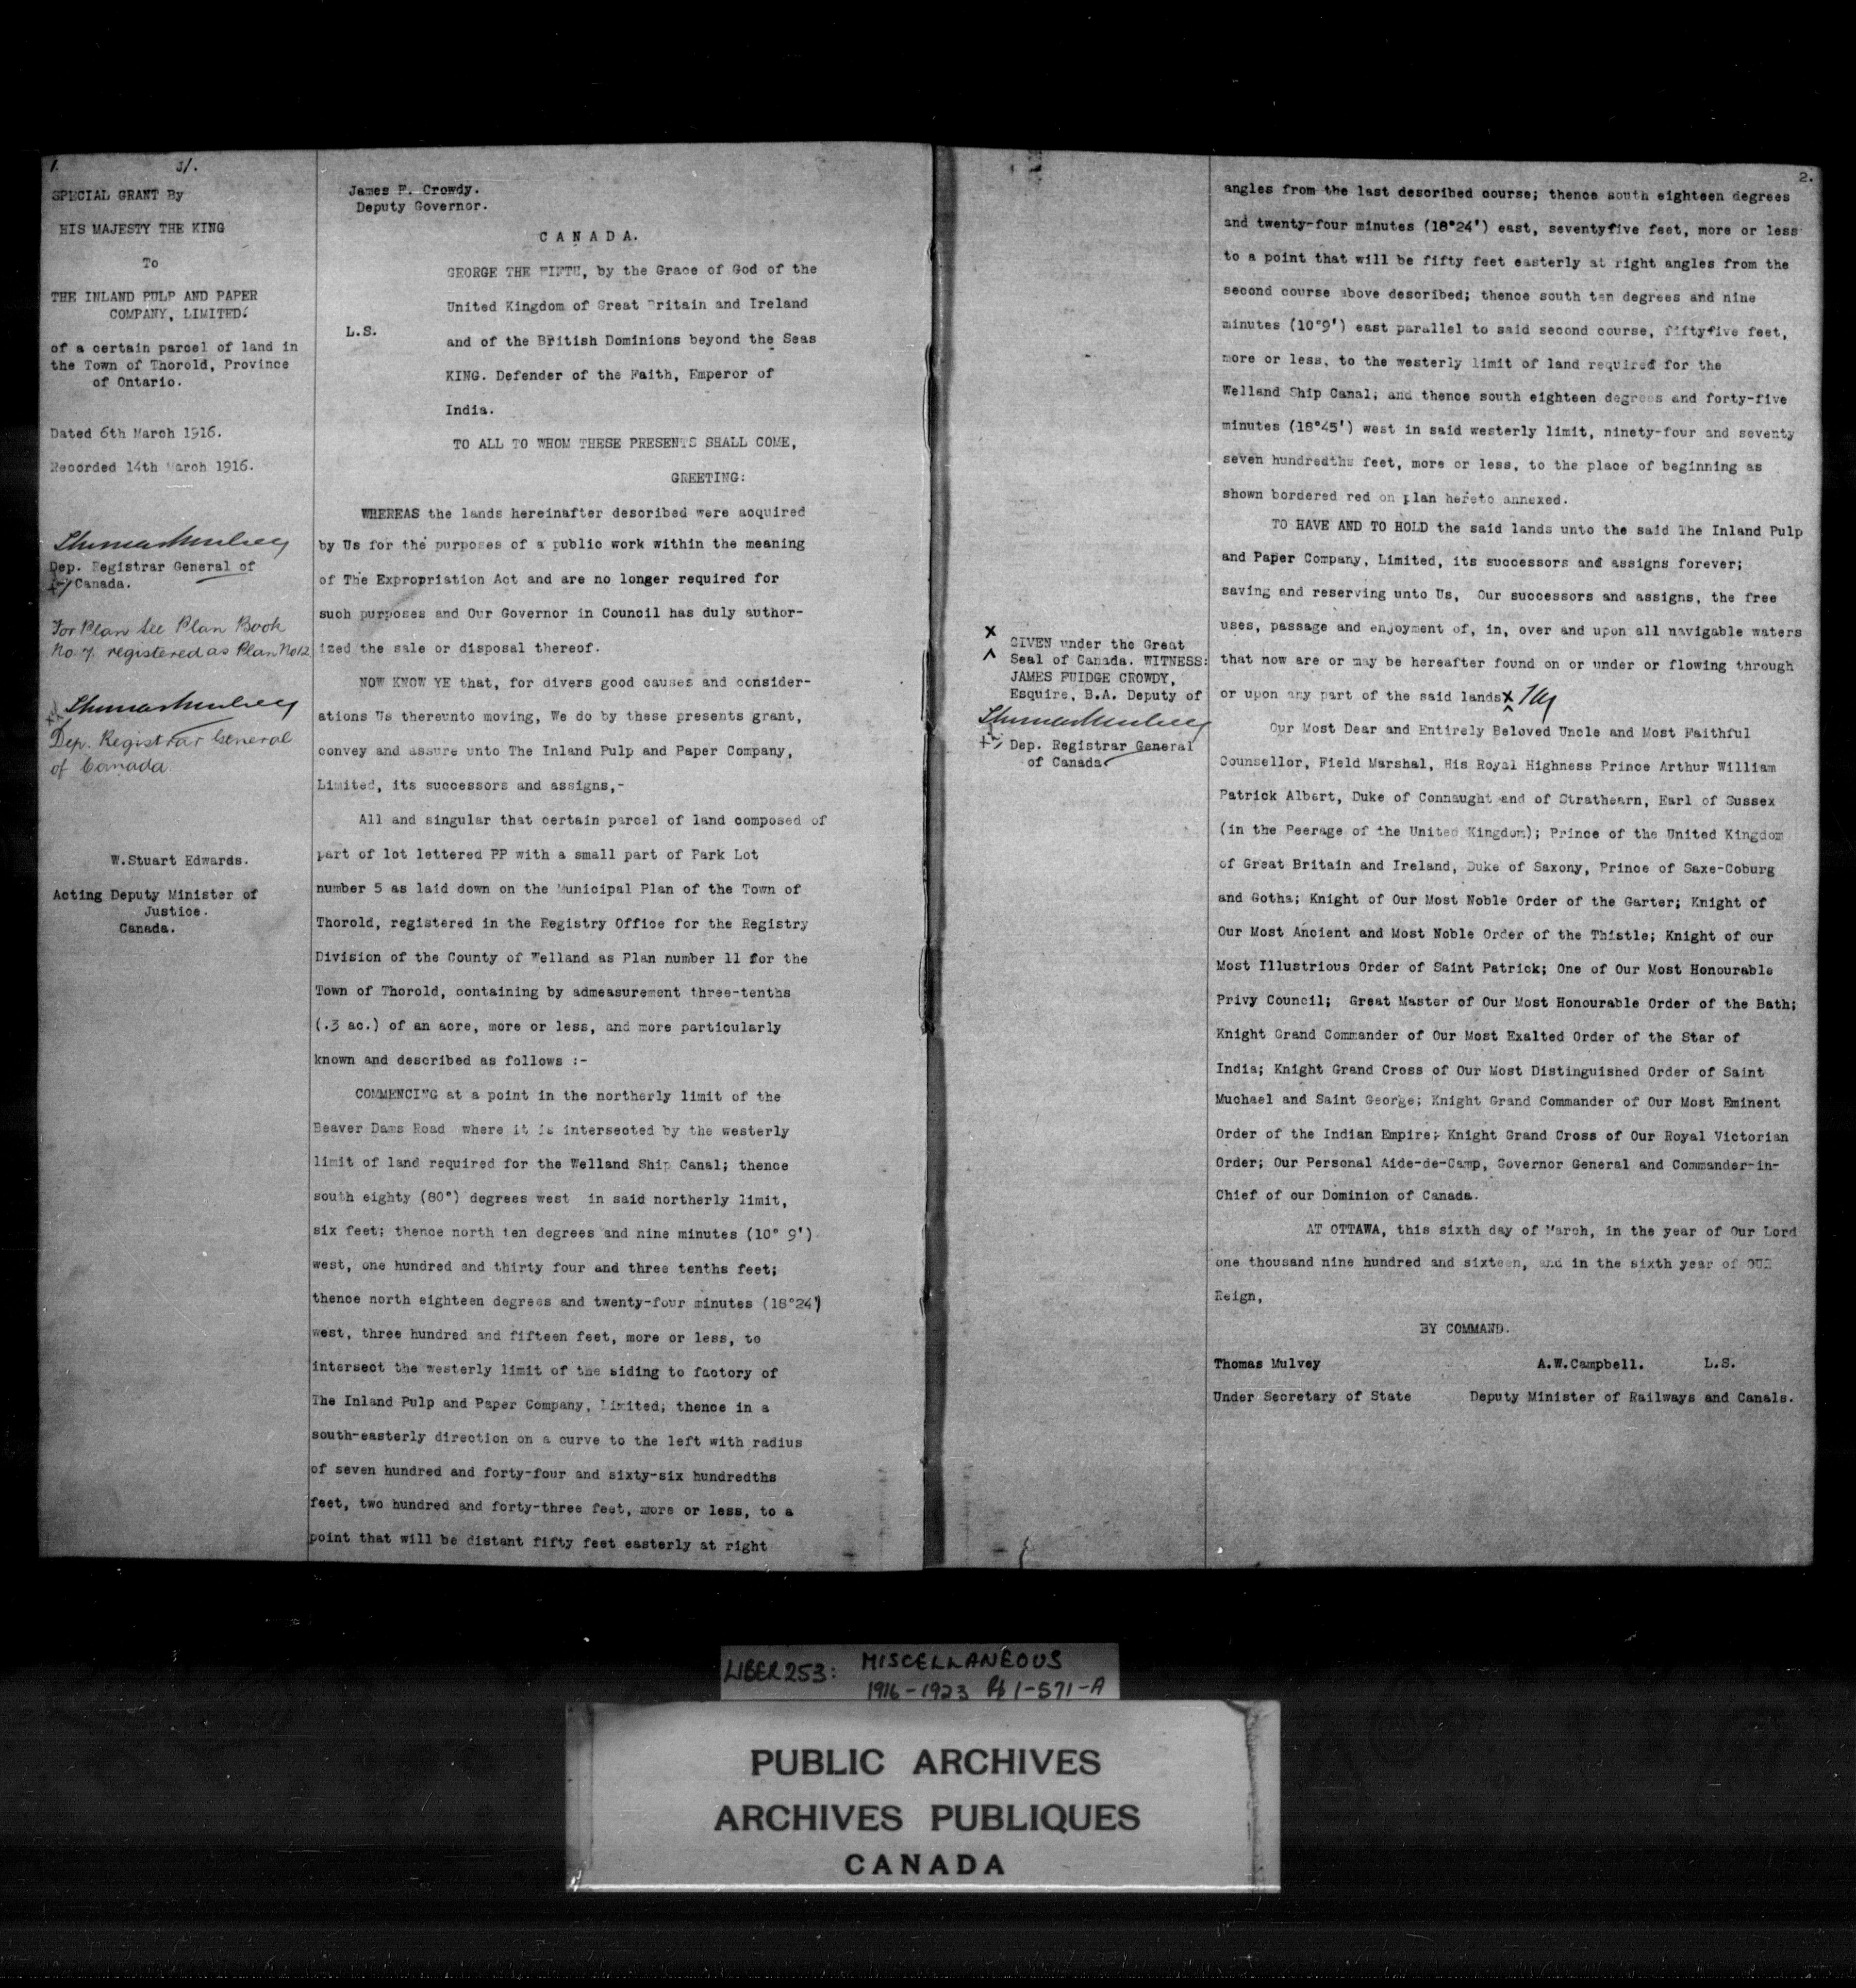 1.
SPECIAL GRANT By
HIS MAJESTY THE KING
To
THE INLAND PULP AND PAPER
COMPANY, LIMITED.
of a certain parcel of land in
the Town of Thorold, Province
of Ontario.
Dated 6th March 1916.
Recorded 14th March 1916.
Thomas Mulvey
Dep. Registrar General of
Canada.
For Plan see Plan Book
No. 7. registered as Plan No 12.
Thomas Mulvey
Dep. Registrar General
of Canada
W.Stuart Edwards.
Acting Deputy Minister of
Justice.
Canada.
James F. Crowdy.
Deputy Governor.
C A N A D A.
GEORGE THE FIFTH, by the Grace of God of the
United Kingdom of Great Britain and Ireland
L.S.
and of the British Dominions beyond the Seas
KING. Defender of the Faith, Emperor of
India.
TO ALL TO WHOM THESE PRESENTS SHALL COME,
GREETING:
WHEREAS the lands hereinafter described were acquired
by Us for the purposes of a public work within the meaning
of The Expropriation Act and are no longer required for
such purposes and Our Governor in Council has duly author-
ized the sale or disposal thereof.
NOW KNOW YE that, for divers good causes and consider-
ations Us thereunto moving, We do by these presents grant,
convey and assure unto The Inland Pulp and Paper Company,
Limited, its successors and assigns,-
All and singular that certain parcel of land composed of
part of lot lettered PP with a small part of Park Lot
number 5 as laid down on the Municipal Plan of the Town of
Thorold, registered in the Registry Office for the Registry
Division of the County of Welland as Plan number 11 for the
Town of Thorold, containing by admeasurement three-tenths
(.3 ac.) of an acre, more or less, and more particularly
known and described as follows :-
COMMENCING at a point in the northerly limit of the
Beaver Dams Road where it is intersected by the westerly
limit of land required for the Welland Ship Canal; thence
south eighty (80°) degrees west in said northerly limit,
six feet; thence north ten degrees and nine minutes (10° 9')
west, one hundred and thirty four and three tenths feet;
thence north eighteen degrees and twenty-four minutes (18°24')
west, three hundred and fifteen feet, more or less, to
intersect the westerly limit of the siding to factory of
The Inland Pulp and Paper Company, Limited; thence in a
south-easterly direction on a curve to the left with radius
of seven hundred and forty-four and sixty-six hundredths
feet, two hundred and forty-three feet, more or less, to a
point that will be distant fifty feet easterly at right
2.
angles from the last described course; thence south eighteen degrees
and twenty-four minutes (18°24') east, seventyfive feet, more or less
to a point that will be fifty feet easterly at right angles from the
second course above described; thence south ten degrees and nine
minutes (10°9') east parallel to said second course, fiftyfive feet,
more or less, to the westerly limit of land required for the
Welland Ship Canal; and thence south eighteen degrees and forty-five
minutes (18°45') west in said westerly limit, ninety-four and seventy
seven hundredths feet, more or less, to the place of beginning as
shown bordered red on plan hereto annexed.
TO HAVE AND TO HOLD the said lands unto the said The Inland Pulp
and Paper Company, Limited, its successors and assigns forever;
saving and reserving unto Us, Our successors and assigns, the free
uses, passage and enjoyment of, in, over and upon all navigable waters
that now are or may be hereafter found on or under or flowing through
or upon any part of the said lands x TM
x
GIVEN under the Great
Seal of Canada. WITNESS:
JAMES FUIDGE CROWDY,
Esquire, B.A. Deputy of
Thomas Mulvey
Dep. Registrar General
of Canada
Our Most Dear and Entirely Beloved Uncle and Most Faithful
Counsellor, Field Marshal, His Royal Highness Prince Arthur William
Patrick Albert, Duke of Connaught and of Strathearn, Earl of Sussex
(in the Peerage of the United Kingdom); Prince of the United Kingdom
of Great Britain and Ireland, Duke of Saxony, Prince of Saxe-Coburg
and Gotha; Knight of Our Most Noble Order of the Garter; Knight of
Our Most Ancient and Most Noble Order of the Thistle; Knight of our
Most Illustrious Order of Saint Patrick; One of Our Most Honourable
Privy Council; Great Master of Our Most Honourable Order of the Bath;
Knight Grand Commander of Our Most Exalted Order of the Star of
India; Knight Grand Cross of Our Most Distinguished Order of Saint
Muchael and Saint George; Knight Grand Commander of Our Most Eminent
Order of the Indian Empire; Knight Grand Cross of Our Royal Victorian
Order; Our Personal Aide-de-Camp, Governor General and Commander-in-
Chief of our Dominion of Canada.
AT OTTAWA, this sixth day of March, in the year of Our Lord
one thousand nine hundred and sixteen, and in the sixth year of OUR
Reign,
BY COMMAND.
Thomas Mulvey A.W.Campbell. L.S.
Under Secretary of State Deputy Minister of Railways and Canals.
LIBER 253: MISCELLANEOUS
1916-1923 Pp 1-571-A
PUBLIC ARCHIVES
ARCHIVES PUBLIQUES
CANADA